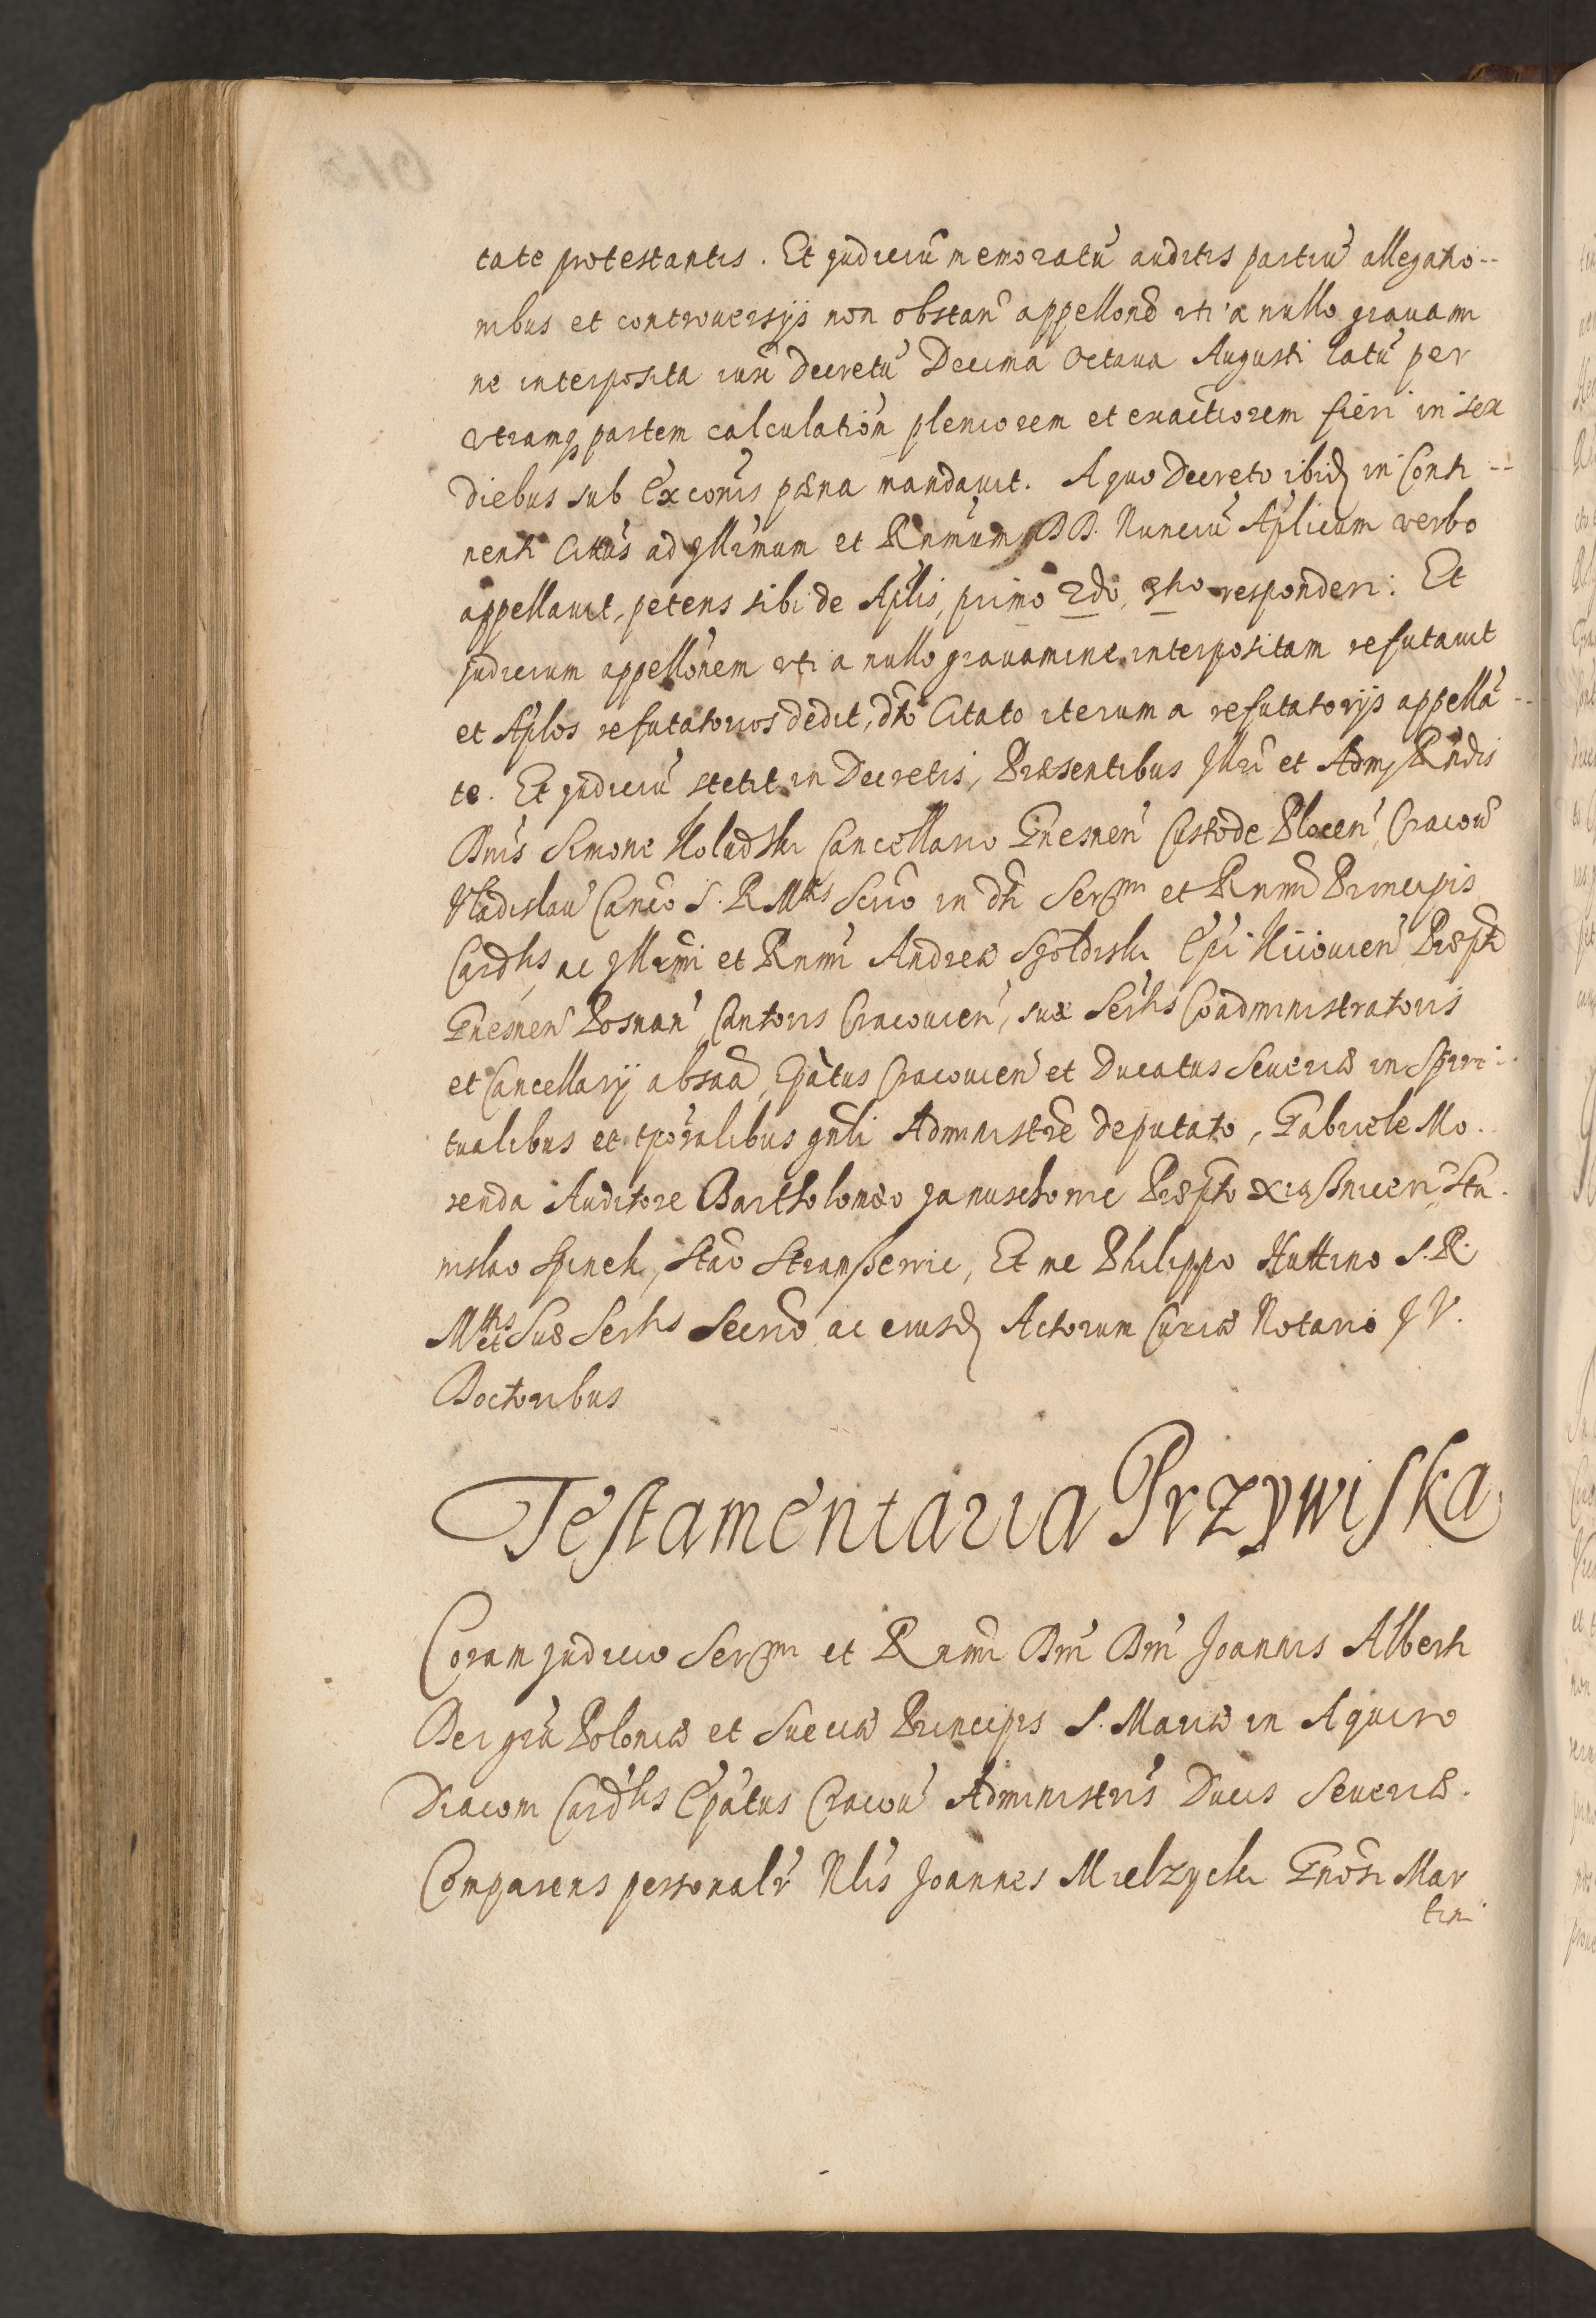 tate protestantis. Et Judiciu memoratu auditis partiu allegatio--
nibus et controuersijs non obstan appellone uti a nullo grauami
ne interposita iux Decretu Decima Octaua Augusti latu per
vtramq partem calculation pleniorem et exactiorem fieri in sex
Diebus sub Exconis pæna mandauit. A quo Decreto ibid in Conti--
nenti Cittus ad Illrmum et Rnmum DD. Nunciu Aplicum verbo
appellauit, petens sibi de Aplis, primo 2do, 3tio responderi: Et
Judicium appellonem uti a nullo grauamine interpositam refutauit
et Aplos refutatorios dedit, dto Citato iterum a refutatorijs appella--
te. Et Judiciu stetit in Decretis, Præsentibus Illri et Adm Rndis
Dnis Simone Koludzki Cancellario Gnesnen Custode Plocen, Cracou
Vladislau Canco S. R. Mtis Scrio in dti Sermi et Rnmi Principis
Cardlis, ac Illrmi et Rnmi Andreæ Szołdrski Epi Kiiouien Præpti
Gnesnen Posnan Cantoris Cracouien, suæ Sertis Coadministratoris
et Cancellarij absna, Epatus Cracouien et Ducatus Seueriæ in Spiri-
tualibus et tporalibus gnli Administre deputato, Gabriele Mo.
renda Auditore Bartholomæo Januschowic Præpto Xiąßnicen Sta.
nislao Spinek, Stao Stramßewic, Et me Philippo Huttino S. R.
Mttis et Suæ Sertis Secrio ac eiusd Actorum Curiæ Notario J V.
Doctoribus
Testamentaria Przywiska
Coram Judicio Sermi et Rnmi Dni Dni Joannis Alberti
Dei gra Poloniæ et Sueciæ Principis S. Mariæ in Aquiro
Diaconi Cardlis Epatus Cracou Administris Ducis Seueriæ.
Comparens personalr Nlis Joannes Mielzycki Gnosi Mar
tini